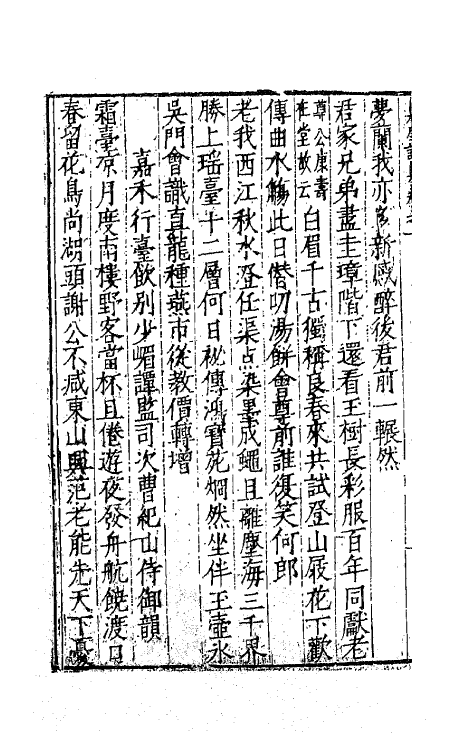 夢闌我亦多新感醉後君前一輾然
君家兄弟盡圭璋階下還看玉樹長彩服百年同獻老
尊公康壽在堂故云白眉千古獨稱良春來共試登山屐花下歡
傳曲水觴此日僭叨湯餅會尊前誰復笑何郎
老我西江秋水澄任渠点染墨成蠅且離塵海三千界
勝上瑶臺十二層何日祕傳鴻寳苑烱然坐伴玉壼氷
吳門會識直龍種燕市從教價轉增
嘉禾行臺飲别少嵋譚監司次曹紀山侍御韻
霜臺凉月度南樓野客當杯且倦遊夜發舟航饒渡口
春留花鳥尚湖頭謝公不减東山興范老能先天下憂